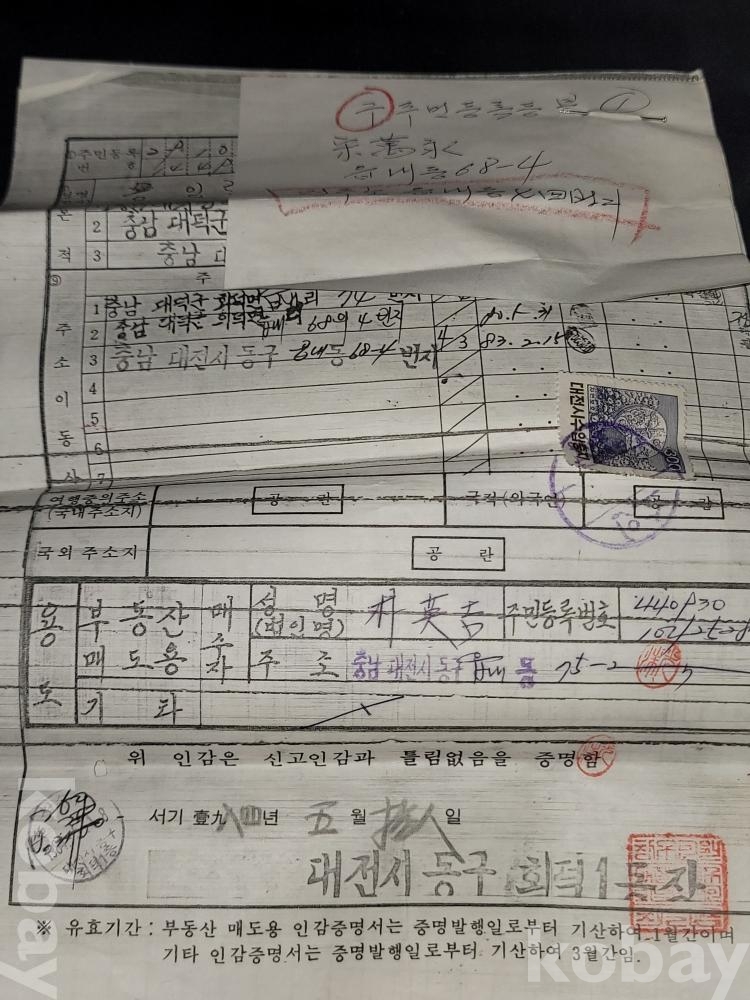 구 주민등록등본 ①
宋萬永
읍내동 68-4
주민등록
번호
본
적
2 충남 대덕군
3 충남 대
주
1 충남 대덕군 회덕면 읍내리 74 번지
2 충남 대덕군 회덕면 읍내리 68의 4 번지
3 충남 대전시 동구 읍내동 68-4 번지 4 3 83. 2. 15
4
5
6
7
주
소
이
동
사
대전시수입증지
600
여행중의주소
(국내주소지)
공 란
국적(외국인)
공 란
국외 주소지
공 란
용
도
부 동 산
매 도 용
매
수
자
성 명
(법인명)
朴英吉
주민등록번호
440130
주 소
충남 대전시 동구 읍내 동 75-2
기 타
위 인감은 신고인감과 틀림없음을 증명함
서기 壹九八四년 五 월 拾八 일
대전시 동구 회덕1동장
※ 유효기간 : 부동산 매도용 인감증명서는 증명발행일로부터 기산하여 1월간이며
기타 인감증명서는 증명발행일로부터 기산하여 3월간임.
kobay
kobay